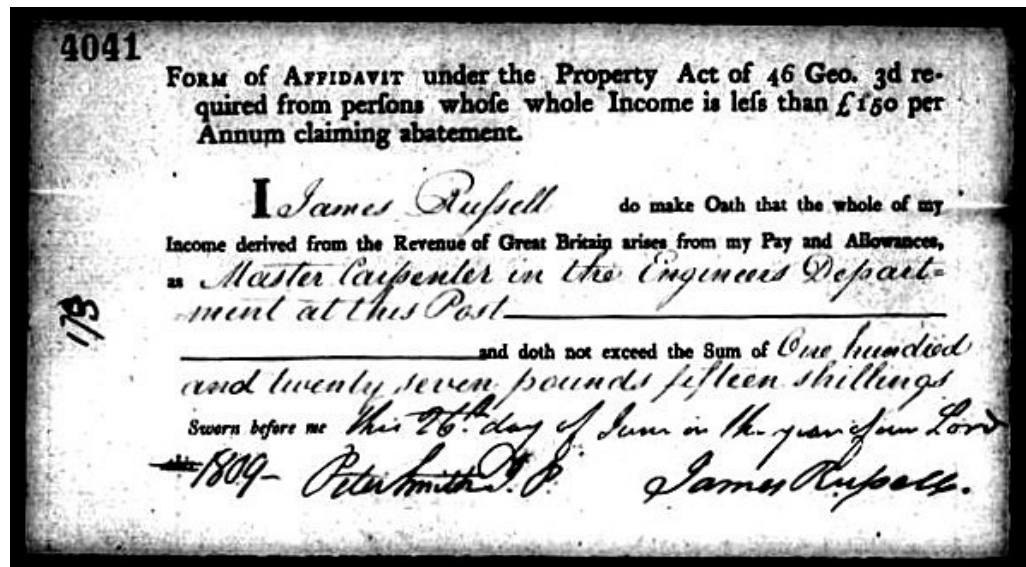 4041
FORM of AFFIDAVIT under the Property Act of 46 Geo. 3d re-
quired from perſons whoſe whole Income is leſs than £150 per
Annum claiming abatement.
I James Ruſsell do make Oath that the whole of my
Income derived from the Revenue of Great Britain arises from my Pay and Allowances,
as Master Carpenter in the Engineers Depart=
ment at this Post
173
and doth not exceed the Sum of One hundred
and twenty seven pounds fifteen shillings
Sworn before me this 26th. day of June in the year of our Lord
1809- Peter Smith J. P. James Ruſsell.